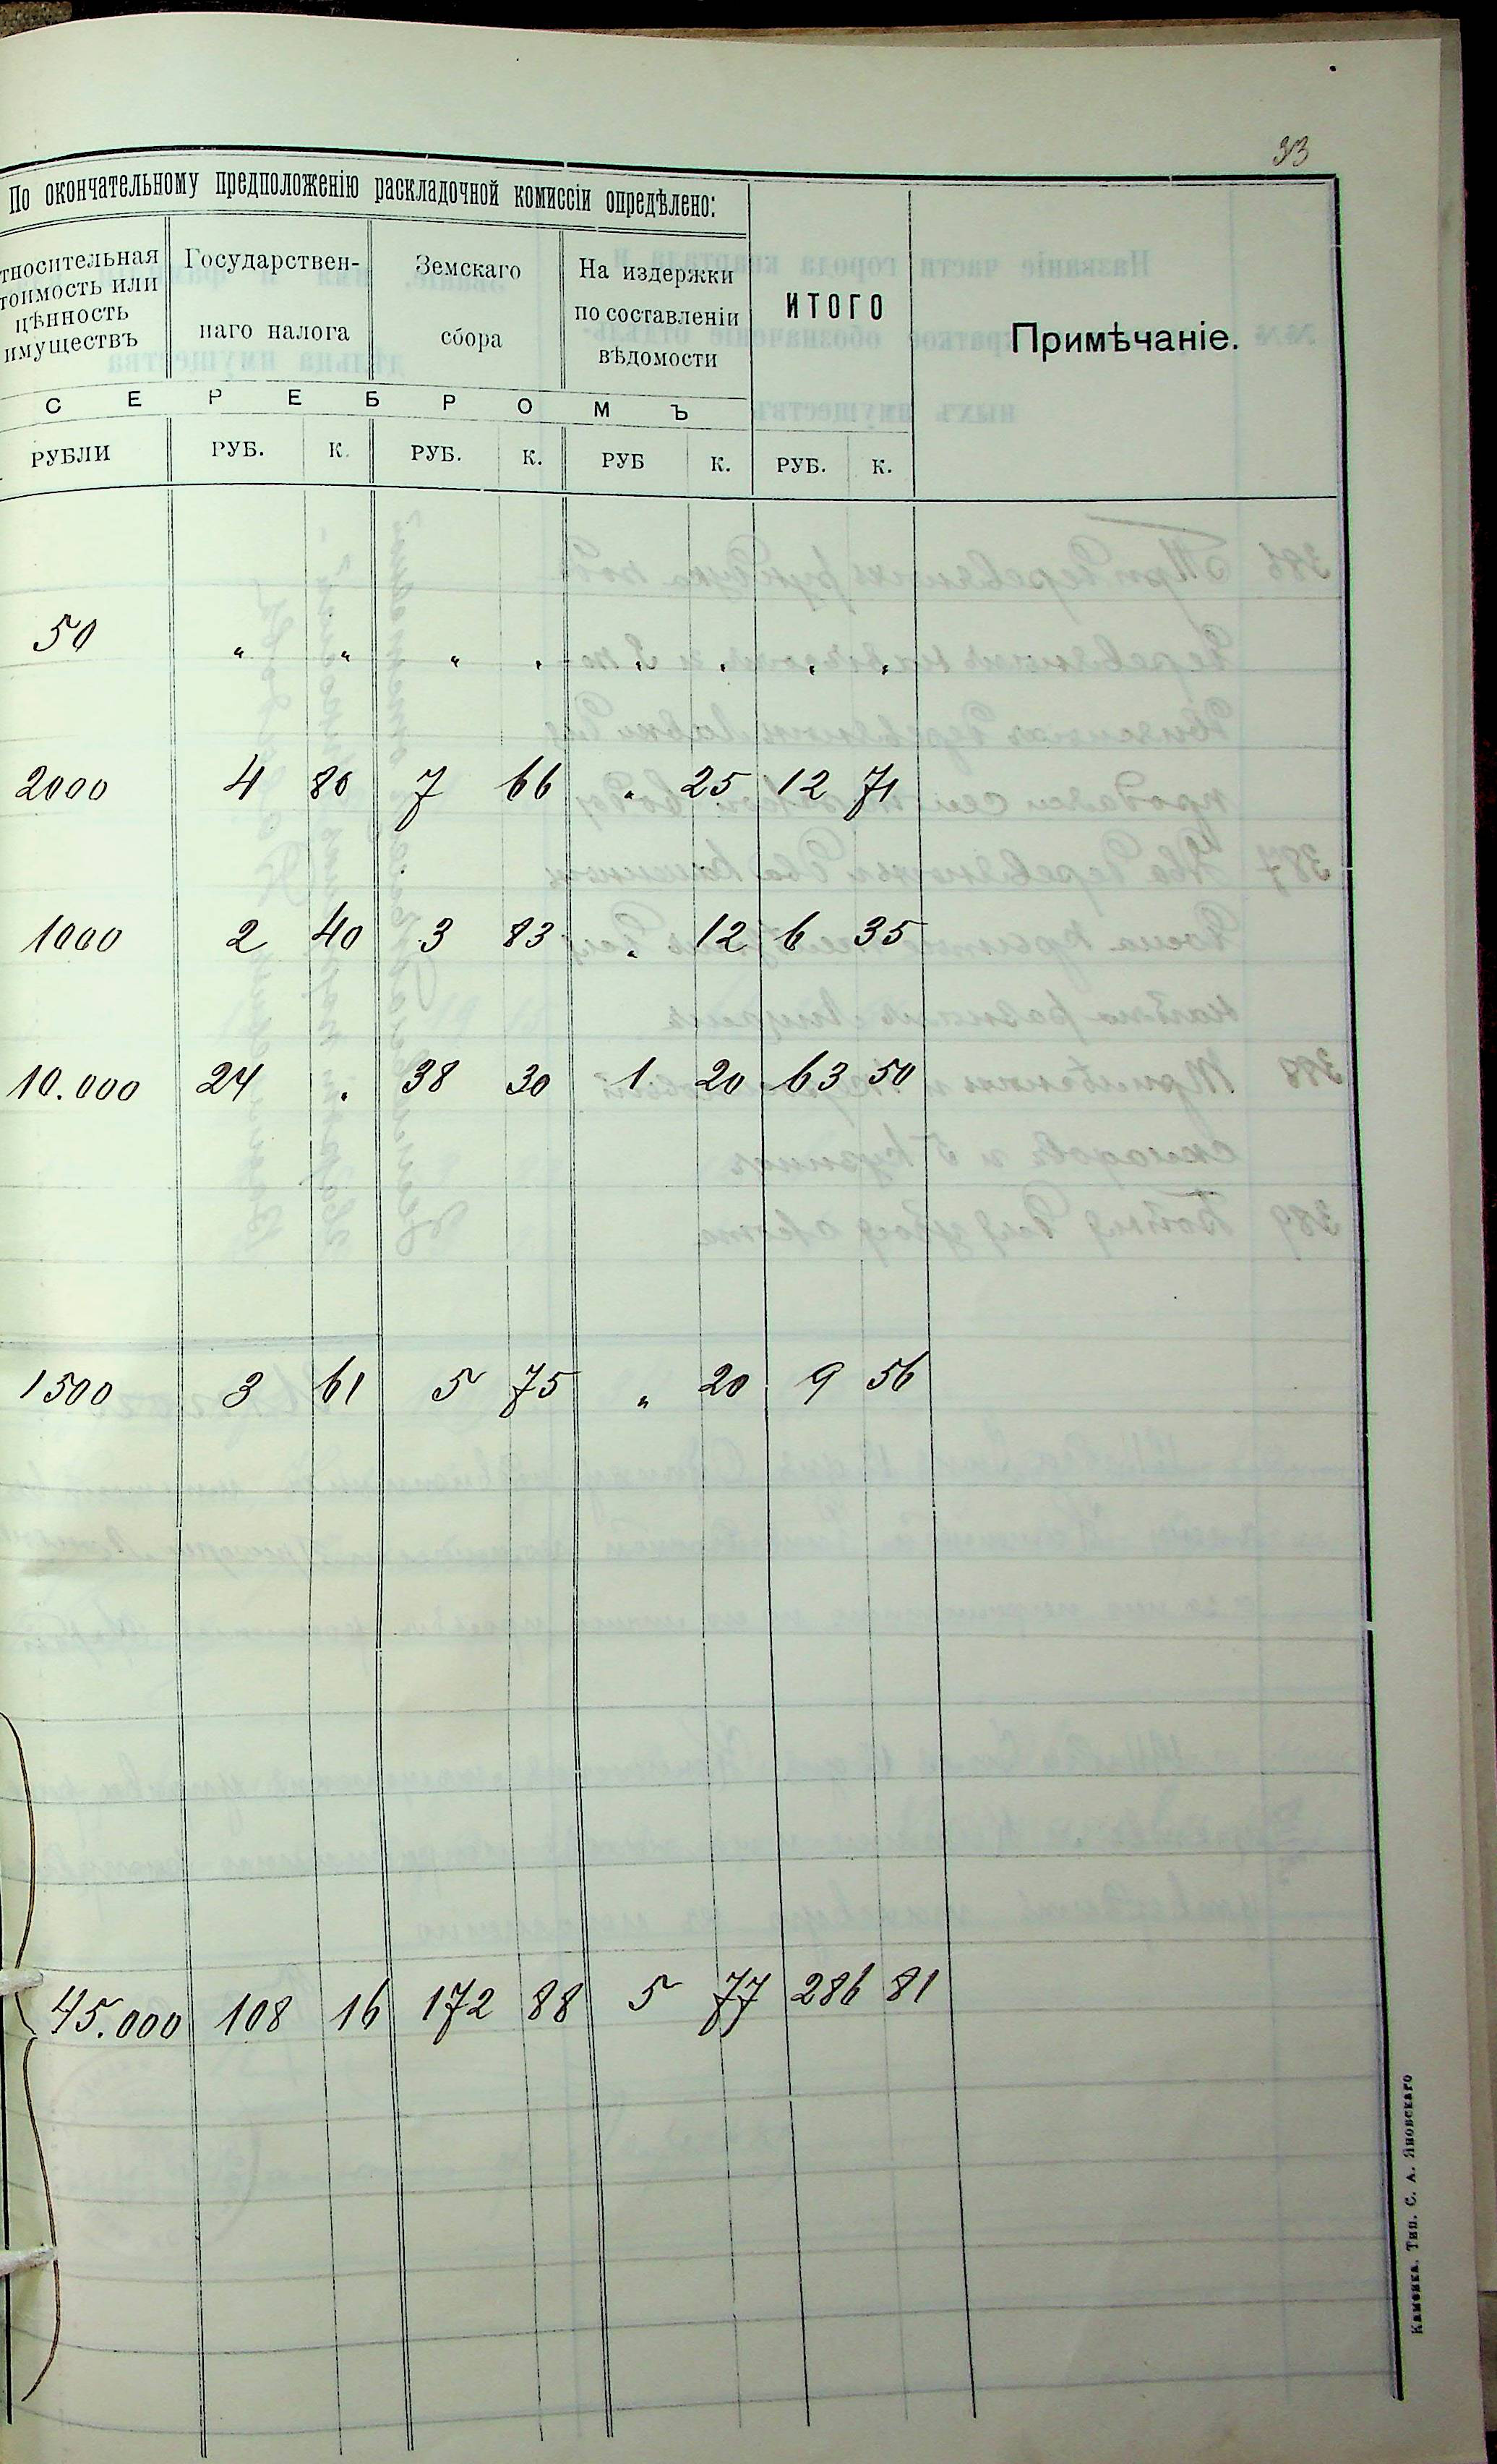 33
По окончательному предположенію раскладочной комиссіи опредѣлено:
тносительная тоимость или цѣнность имуществъ | Государствен-наго налога | Земскаго сбора | На издержки по составленіи вѣдомости | ИТОГО | Примѣчаніе.
С Е Р Е Б Р О М Ъ
РУБЛИ | РУБ. | К. | РУБ. | К. | РУБ | К. | РУБ. | К.
50 | " | " | " | " | " | " | " | "
2000 | 4 | 80 | 7 | 66 | " | 25 | 12 | 71
1000 | 2 | 40 | 3 | 83 | " | 12 | 6 | 35
10.000 | 24 | " | 38 | 30 | 1 | 20 | 63 | 50
1500 | 3 | 61 | 5 | 75 | " | 20 | 9 | 56
45.000 | 108 | 16 | 172 | 88 | 5 | 77 | 286 | 81
Каменка. Тип. С. А. Яновскаго